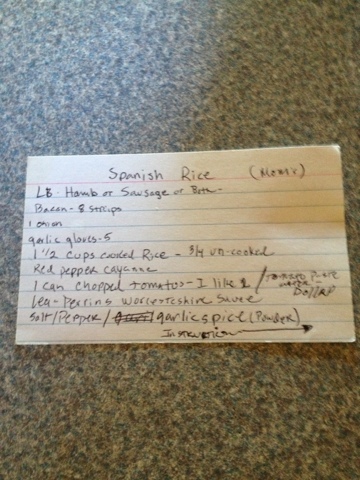 Spanish Rice (Mom's)
LB. Hamb or Sausage or Both -
Bacon - 8 strips
1 onion
garlic gloves - 5
1 1/2 cups cooked Rice - 3/4 un-cooked
Red pepper cayenne
1 can chopped tomatos - I like 2 / Tomato Paste
Lea - Perrins Worcestershire Sauce
Salt/Pepper/ garlic spice (Powder)
Instruction